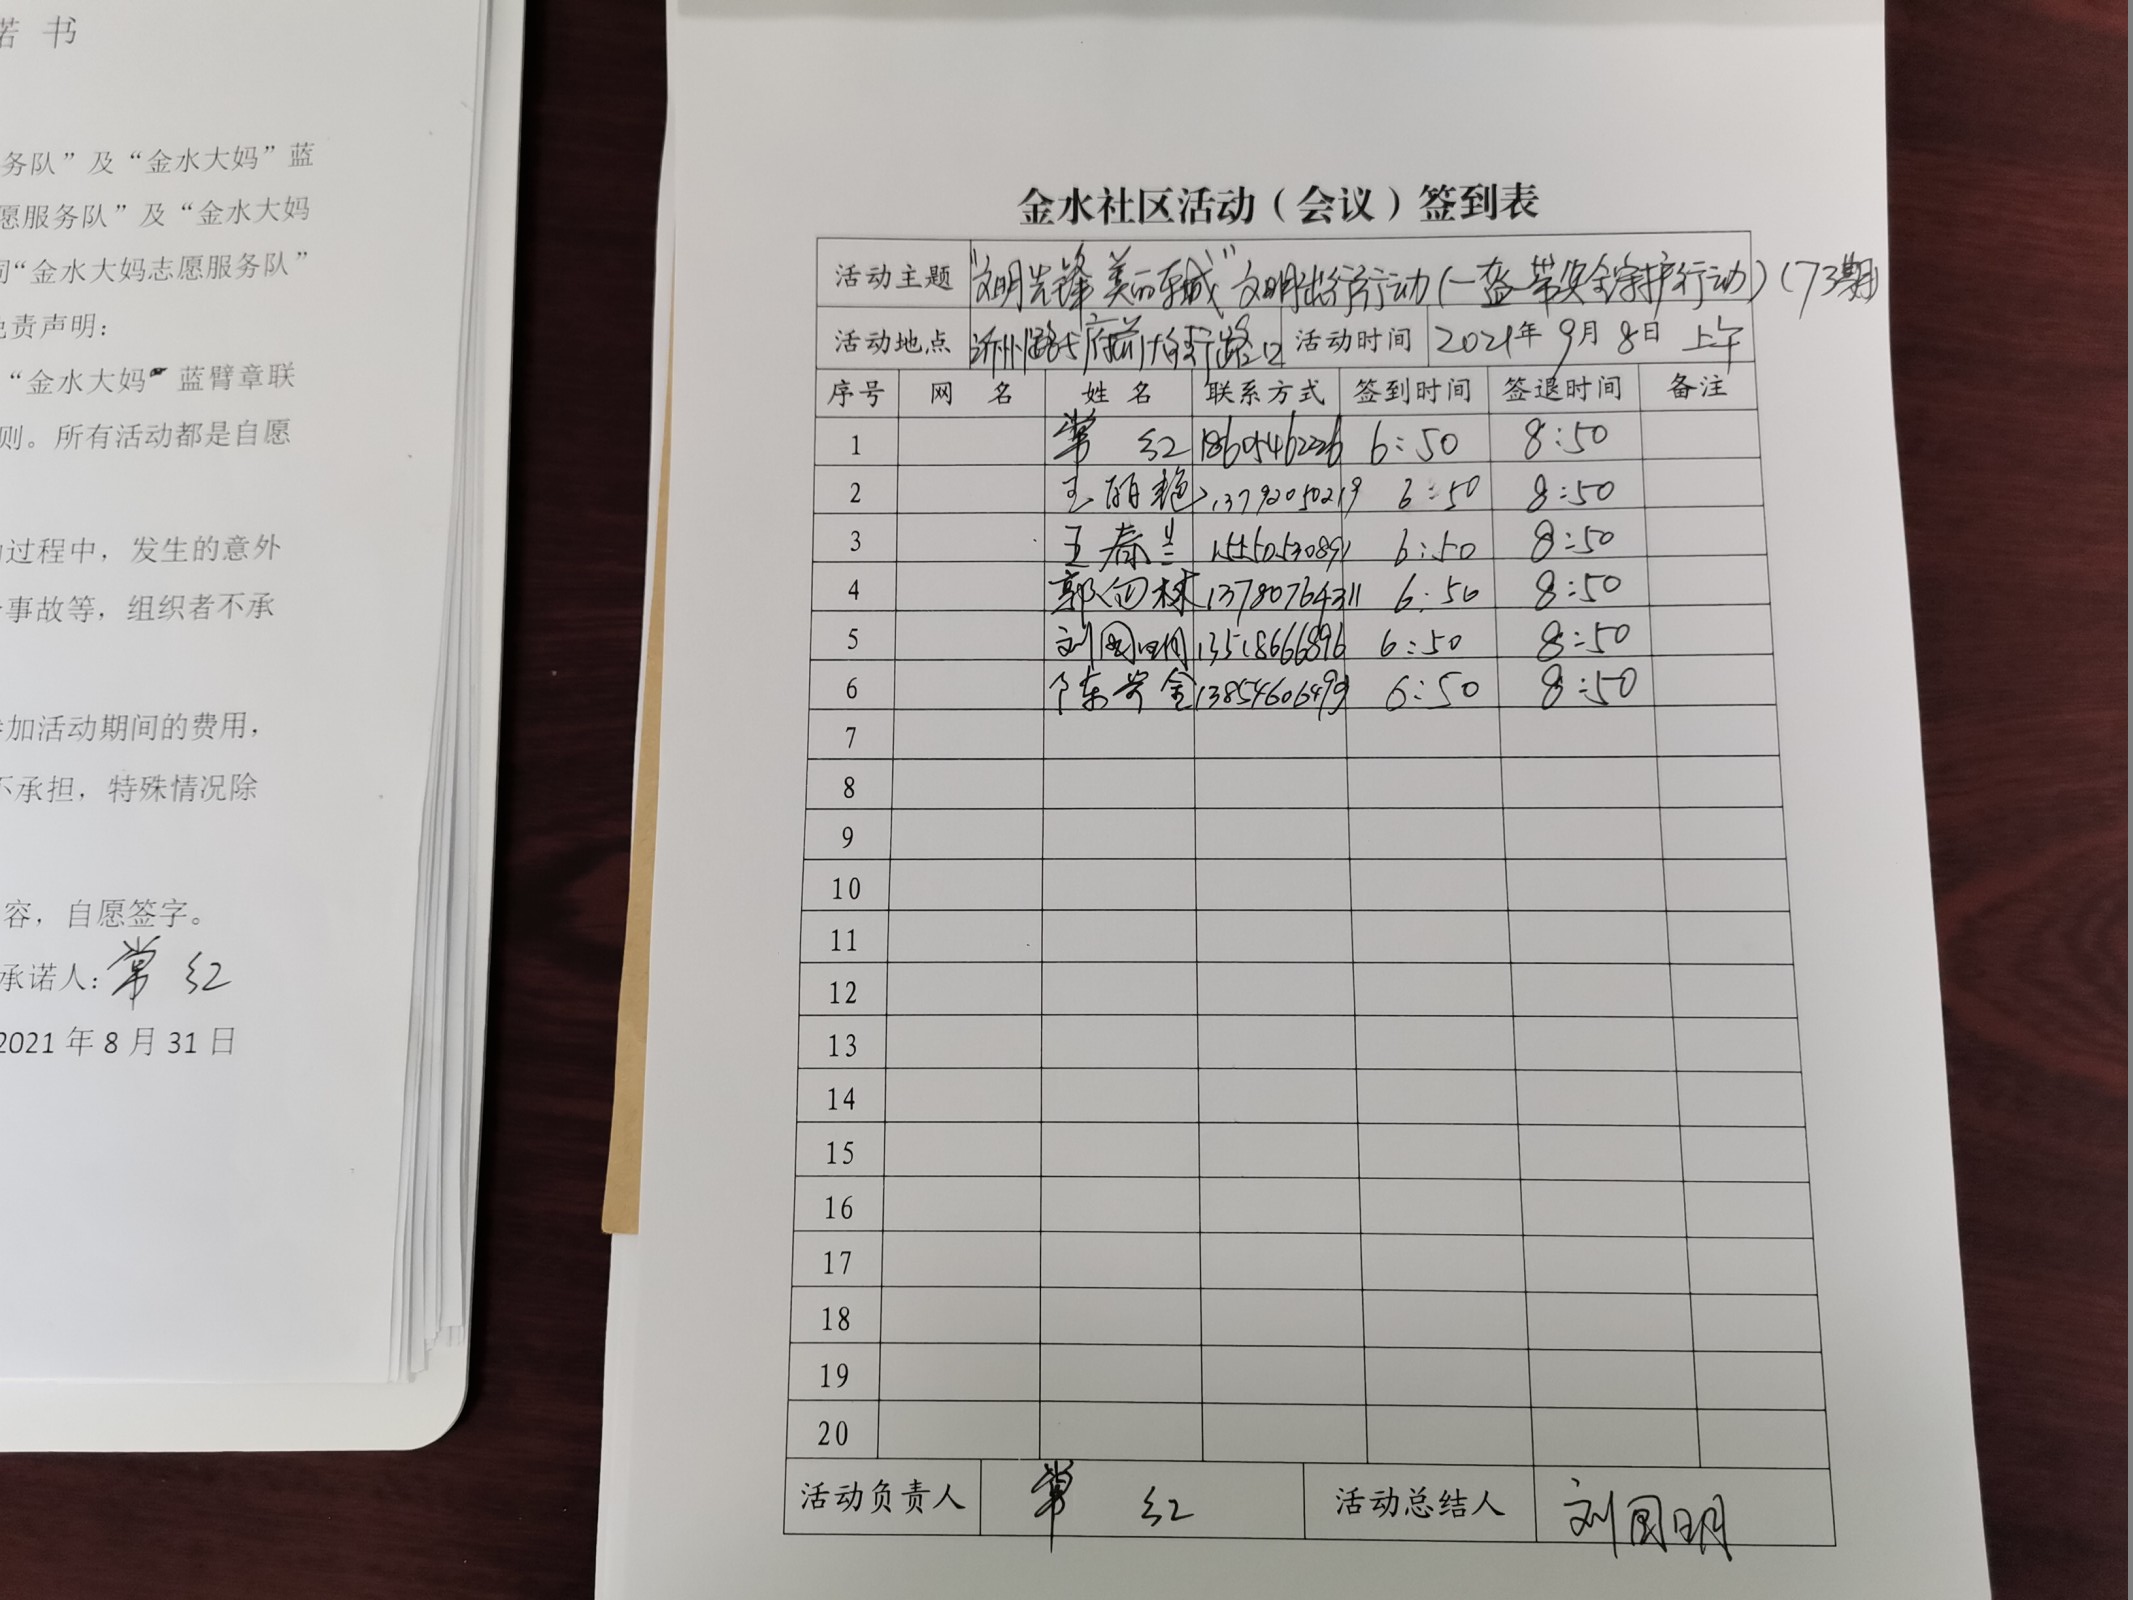 诺 书
务队”及“金水大妈”蓝
愿服务队”及“金水大妈
同“金水大妈志愿服务队”
免责声明：
“金水大妈” 蓝臂章联
则。所有活动都是自愿
过程中，发生的意外
事故等，组织者不承
参加活动期间的费用，
不承担，特殊情况除
容，自愿签字。
承诺人：常 红
2021 年 8 月 31 日
金水社区活动（会议）签到表
活动主题 “文明先锋 美丽东城”文明出行行动（一盔一带安全守护行动）（73期）
活动地点 沂州路与府前大街路口 活动时间 2021年 9月 8日 上午
序号 网 名 姓 名 联系方式 签到时间 签退时间 备注
1 常 红 18605462226 6:50 8:50
2 王丽艳 13792050219 6:50 8:50
3 王春兰 15550530891 6:50 8:50
4 郭 林 13780764311 6:50 8:50
5 刘国明 13518666896 6:50 8:50
6 陈 金 13854606499 6:50 8:50
7
8
9
10
11
12
13
14
15
16
17
18
19
20
活动负责人 常 红 活动总结人 刘国明